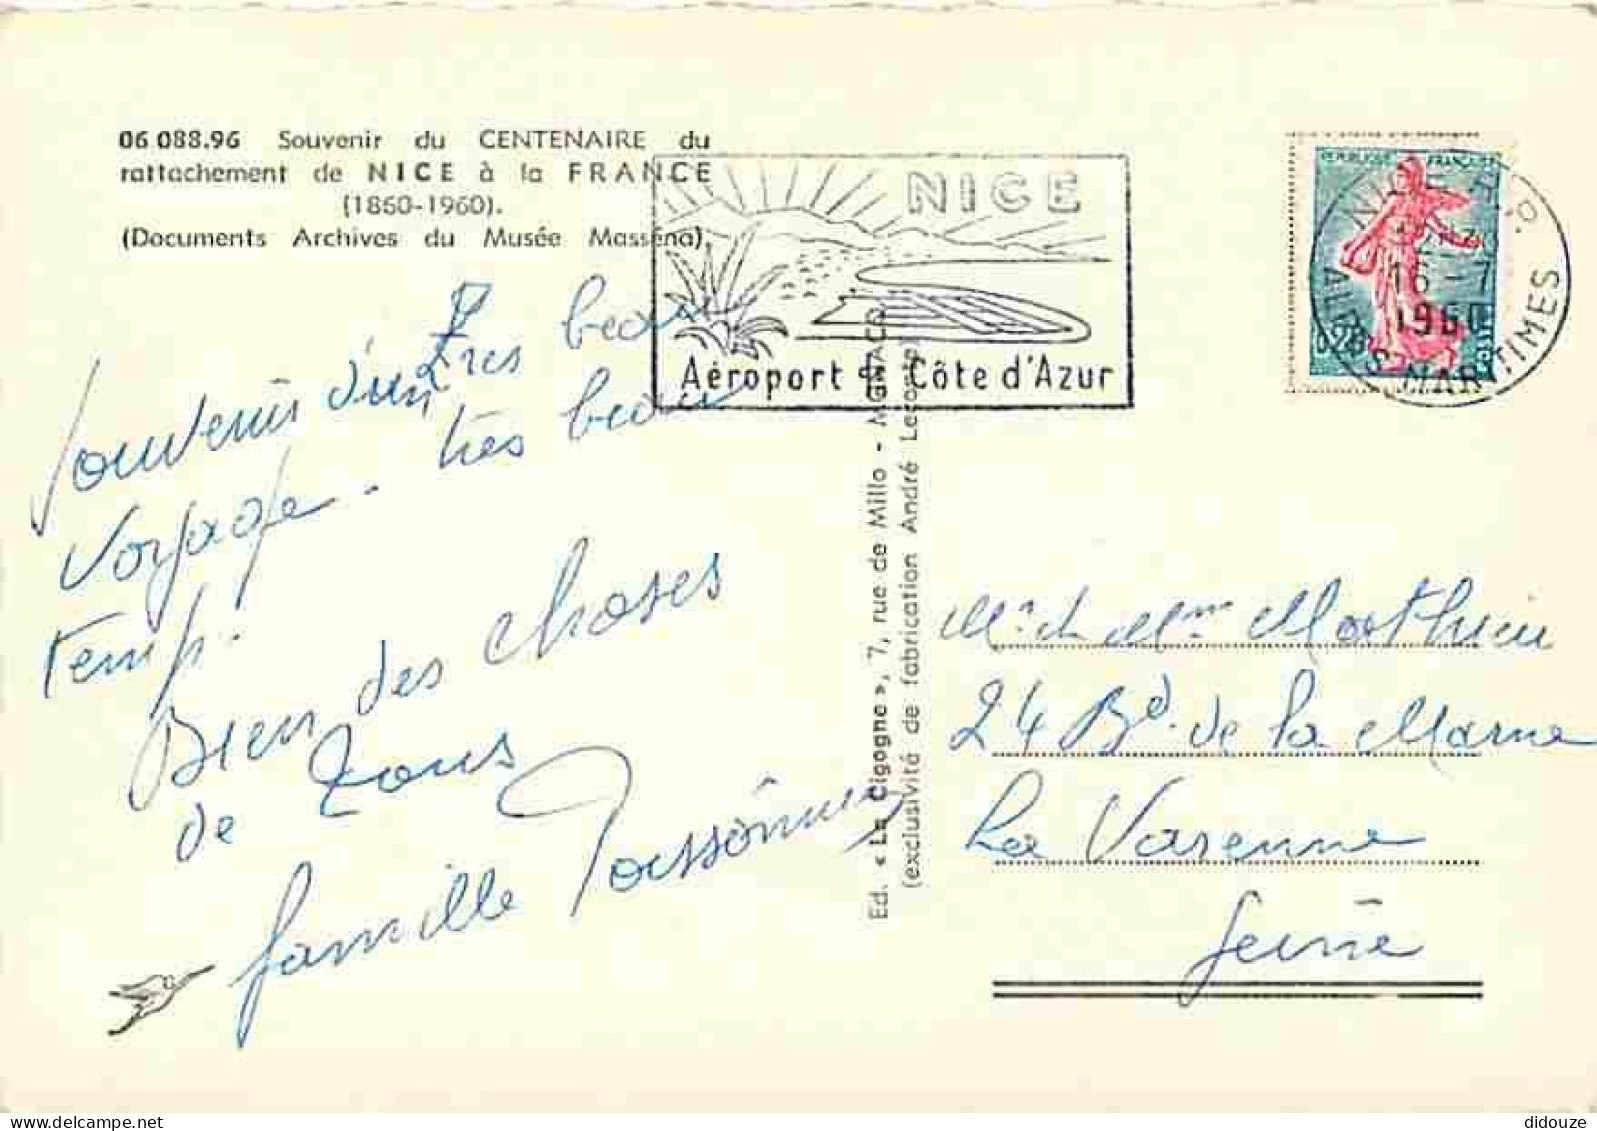 06 088.96 Souvenir du CENTENAIRE du
rattachement de NICE à la FRANCE
(1860-1960).
(Documents Archives du Musée Masséna).
NICE
Aéroport de Côte d'Azur
REPUBLIQUE FRANÇAISE
0,20
POSTES
NICE R.P.
16-7
1960
ALPES MARITIMES
Souvenir d'un très beau
voyage - très beau
temps.
Bien des choses
de tous
famille
Ed. « La Cigogne », 7, rue de Millo - MONACO
(exclusivité de fabrication André Leconte)
Mr. et Mme Mathieu
24 Bd. de la Marne
La Varenne
Seine
delcampe.net
didouze